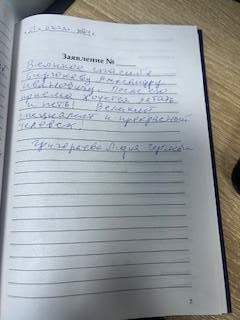 Заявление №
Великое спасибо
Александру
Ивановичу. После его
приема хочется летать
и петь! Великий
специалист и прекрасный
человек.
Григорьева Лидия